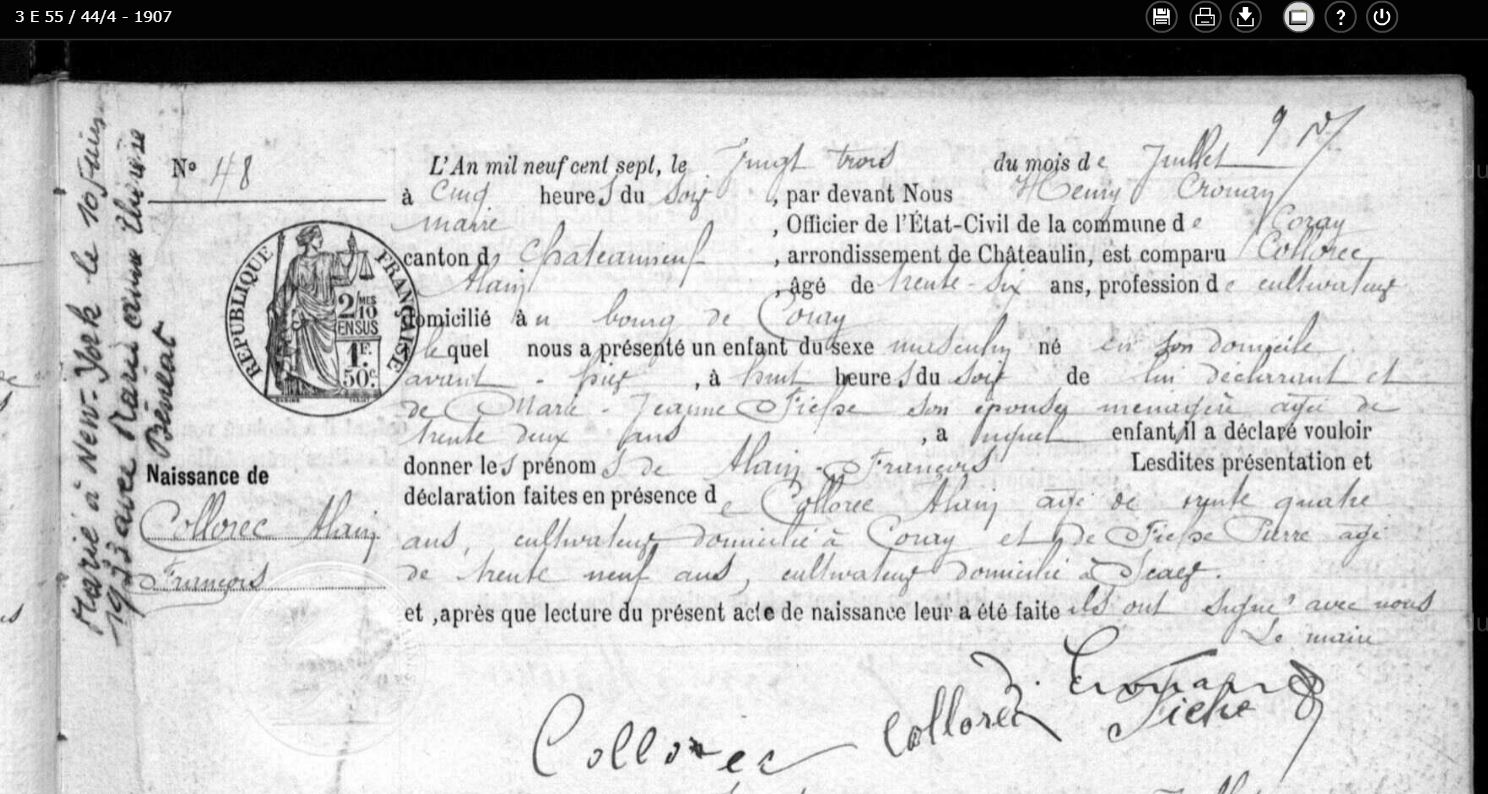 3 E 55 / 44/4 - 1907
Marié à New-York le 10 Juin
1933 avec Marie Anne
Bénéat
N° 48
RÉPUBLIQUE FRANÇAISE
2 MES
10
EN SUS
1 F.
50 c.
Naissance de
Collorec Alain
François
L'An mil neuf cent sept, le vingt trois du mois de Juillet
à cinq heures du soir, par devant Nous Henry Crouan
maire, Officier de l'État-Civil de la commune de Coray
canton de Chateauneuf, arrondissement de Châteaulin, est comparu Collorec
Alain, âgé de trente-six ans, profession de cultivateur
domicilié au bourg de Coray
lequel nous a présenté un enfant du sexe masculin né en son domicile
avant-hier, à huit heures du soir de lui déclarant et
de Marie-Jeanne son épouse ménagère agée de
trente deux ans, auquel enfant, il a déclaré vouloir
donner les prénoms de Alain-François Lesdites présentation et
déclaration faites en présence de Collorec Alain agé de trente quatre
ans, cultivateur domicilié à Coray et de Pierre agé
de trente neuf ans, cultivateur domicilié à Scaer.
et, après que lecture du présent acte de naissance leur a été faite ils ont signé avec nous
Le maire
Crouan
Collorec Collorec